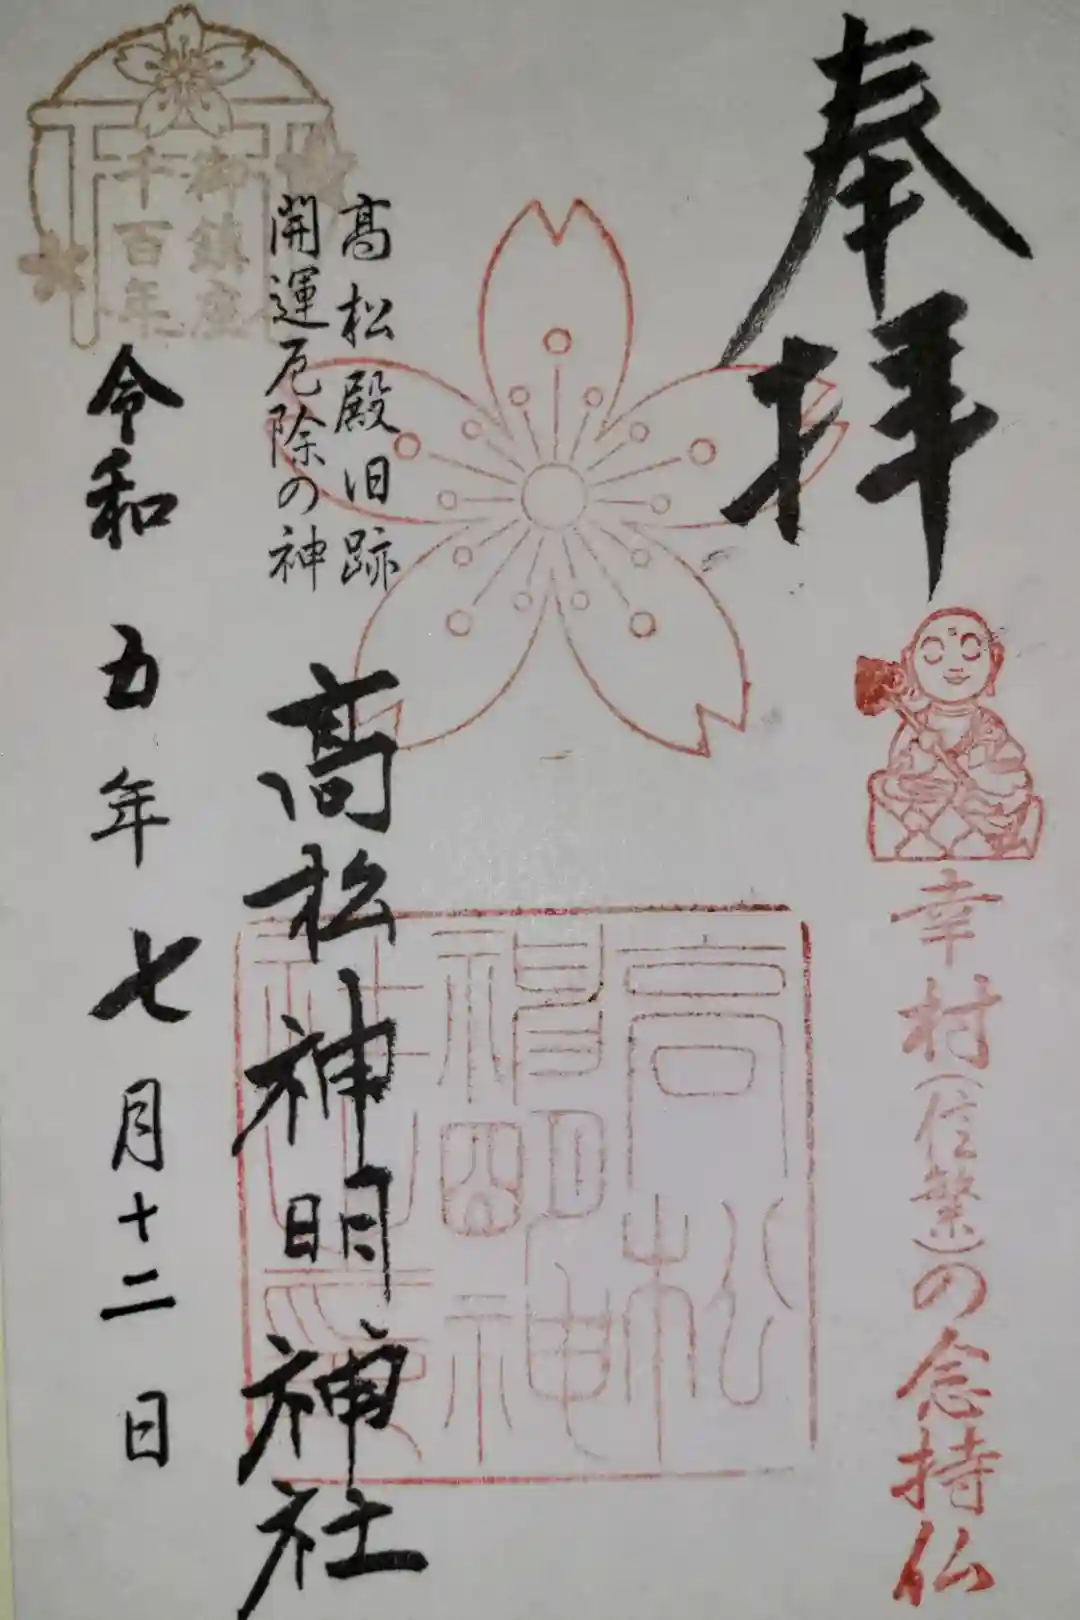 奉拝
幸村(信繁)の念持仏
高松神明神社印
髙松殿旧跡
開運厄除の神
髙松神明神社
御鎮座
千百年
令和五年七月十二日